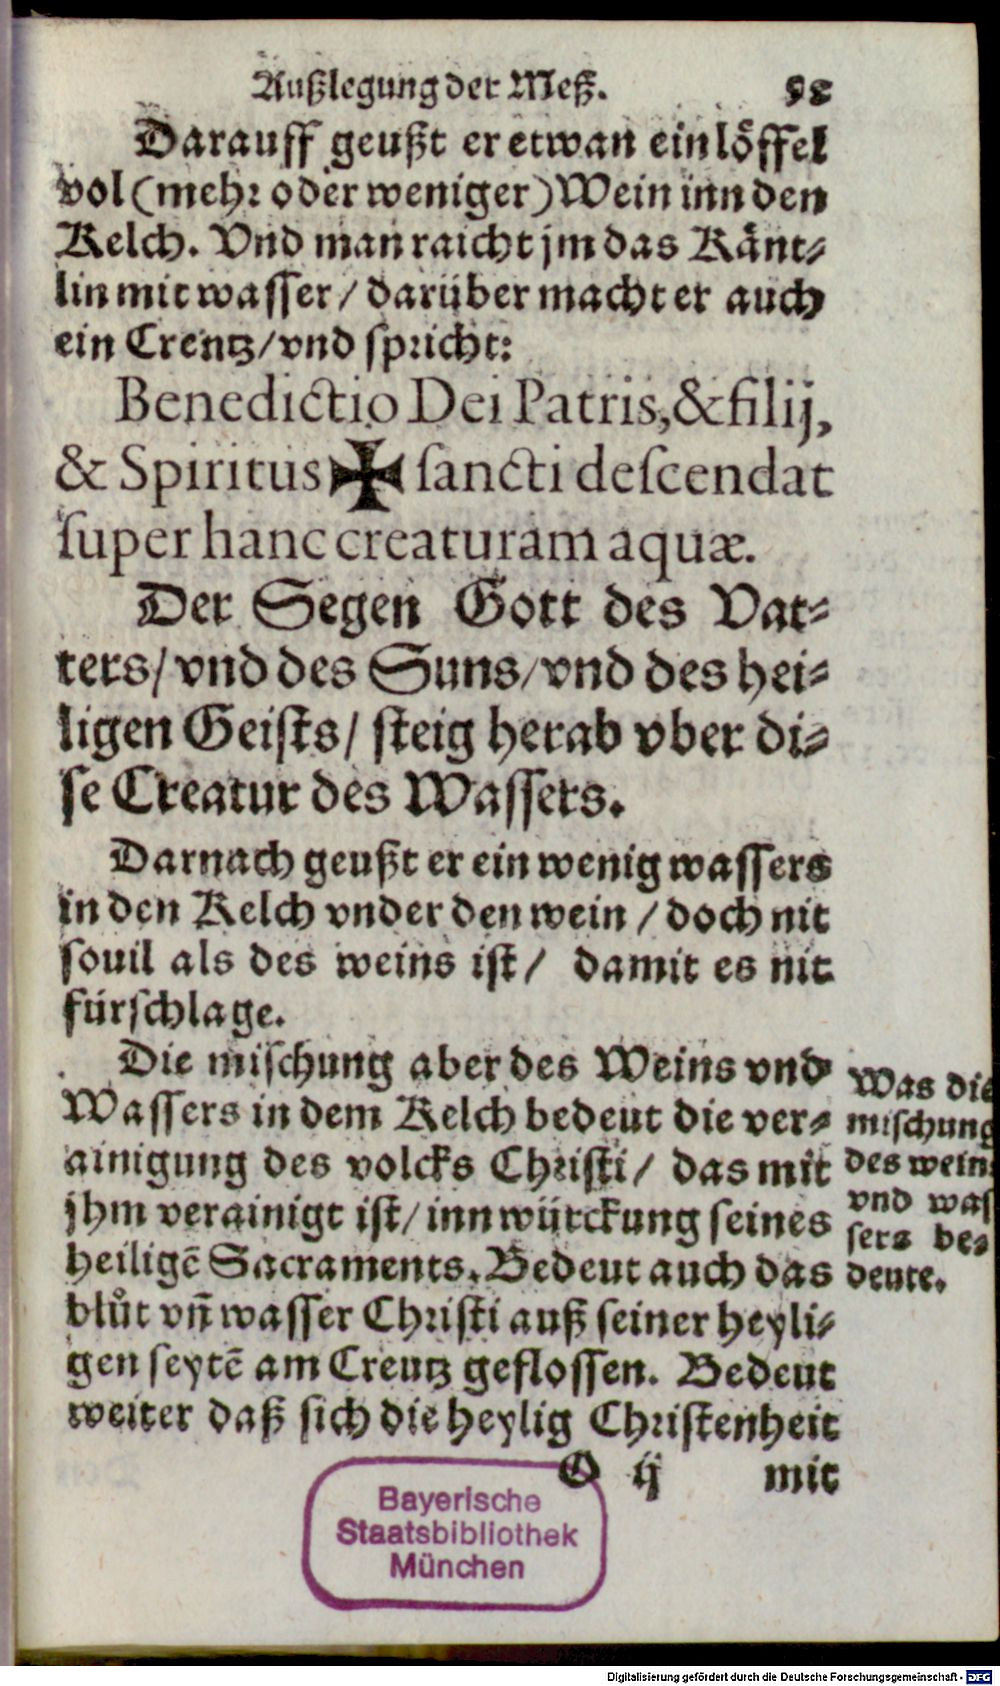 Außlegung der Meß. 98
Darauff geußt er etwan ein löffel
vol (mehr oder weniger) Wein inn den
Kelch. Vnd man raicht jm das Känt⸗
lin mit wasser / darüber macht er auch
ein Creutz / vnd spricht:
Benedictio Dei Patris, & filij,
& Spiritus ✠ sancti descendat
super hanc creaturam aquæ.
Der Segen Gott des Vat⸗
ters / vnd des Suns / vnd des hei⸗
ligen Geists / steig herab vber di⸗
se Creatur des Wassers.
Darnach geußt er ein wenig wassers
in den Kelch vnder den wein / doch nit
souil als des weins ist / damit es nit
fürschlage.
Die mischung aber des Weins vnd
Wassers in dem Kelch bedeut die ver⸗
ainigung des volcks Christi / das mit
jhm verainigt ist / inn würckung seines
heiligē Sacraments. Bedeut auch das
blůt vñ wasser Christi auß seiner heyli⸗
gen seytē am Creutz geflossen. Bedeut
weiter daß sich die heylig Christenheit
O ij mit
Was die
mischung
des weins
vnd was
sers be⸗
deute.
Bayerische
Staatsbibliothek
München
Digitalisierung gefördert durch die Deutsche Forschungsgemeinschaft - DFG